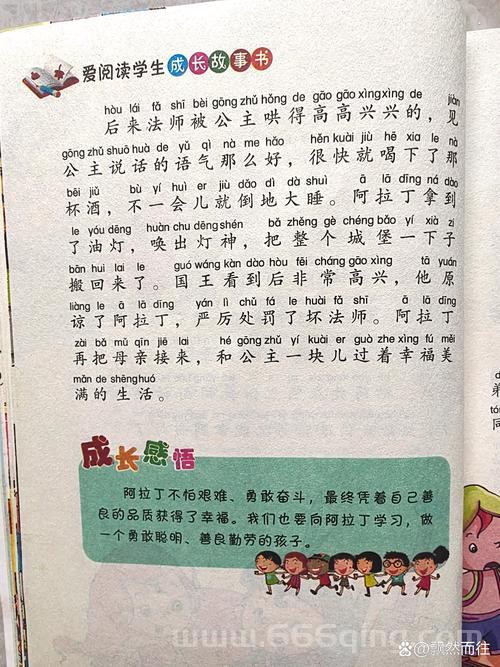 爱阅读学生成长故事书
hòu lái fǎ shī bèi gōng zhǔ hǒng de gāo gāo xìng xìng de jiàn
后来法师被公主哄得高高兴兴的，见
gōng zhǔ shuō huà de yǔ qì nà me hǎo hěn kuài jiù hē xia le nà
公主说话的语气那么好，很快就喝下了那
bēi jiǔ bù yí huì er jiù dǎo dì dà shuì ā lā dīng ná dào
杯酒，不一会儿就倒地大睡。阿拉丁拿到
le yóu dēng huàn chu dēng shén bǎ zhěng gè chéng bǎo yí xià zi
了油灯，唤出灯神，把整个城堡一下子
bān huí lai le guó wáng kàn dào hòu fēi cháng gāo xìng tā yuán
搬回来了。国王看到后非常高兴，他原
liàng le ā lā dīng yán lì chǔ fá le huài fǎ shī ā lā dīng
谅了阿拉丁，严厉处罚了坏法师。阿拉丁
zài bǎ mǔ qīn jiē lai hé gōng zhǔ yí kuài er guò zhe xìng fú měi
再把母亲接来，和公主一块儿过着幸福美
mǎn de shēng huó
满的生活。
成长感悟
阿拉丁不怕艰难、勇敢奋斗，最终凭着自己善
良的品质获得了幸福。我们也要向阿拉丁学习，做
一个勇敢聪明、善良勤劳的孩子。
弟
同
www.666qing.com
@飘然而往